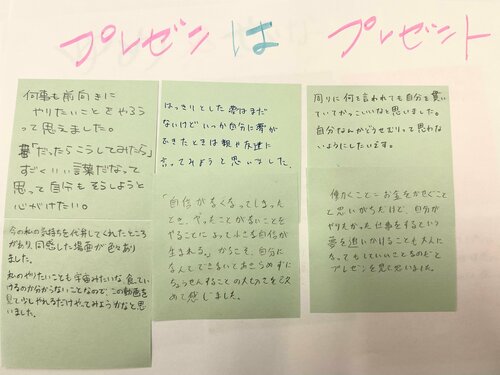 プレゼンは プレゼント
何事も前向きに
やりたいことをやろう
って思えました。
夢「だったらこうしてみたら」
すごくいい言葉だなって
思って自分もそうしようと
心がけたい。
はっきりとした夢はまだ
ないけどいつか自分に夢が
おきたときは親や友達に
言ってみようと思いました。
周りに何を言われても自分を貫い
ていてかっこいいなと思いました。
自分なんかどうせむりって思わな
いようにしたいです。
今の私の気持ちを代弁してくれたところ
があり、同感した場面が色々あり
ました。
私のやりたいことも宇宙みたいな、食ってい
けるのか分からないことなので、この動画を
見て少しやれるだけやってみようかなと思
いました。
「自信がなくなってしまった
とき、やったことがないことを
やることによって小さな自信が
生まれる。」からこそ、自分に
なんてできないであきらめずに
ちょうせんすることの大切さを改
めて感じました。
働くこと=お金をかせぐこと
と思いがちだけど、自分が
やりたかった仕事をするという
夢を追いかけることも大人に
なってもしていいことなのだと
プレゼンを見て思いました。